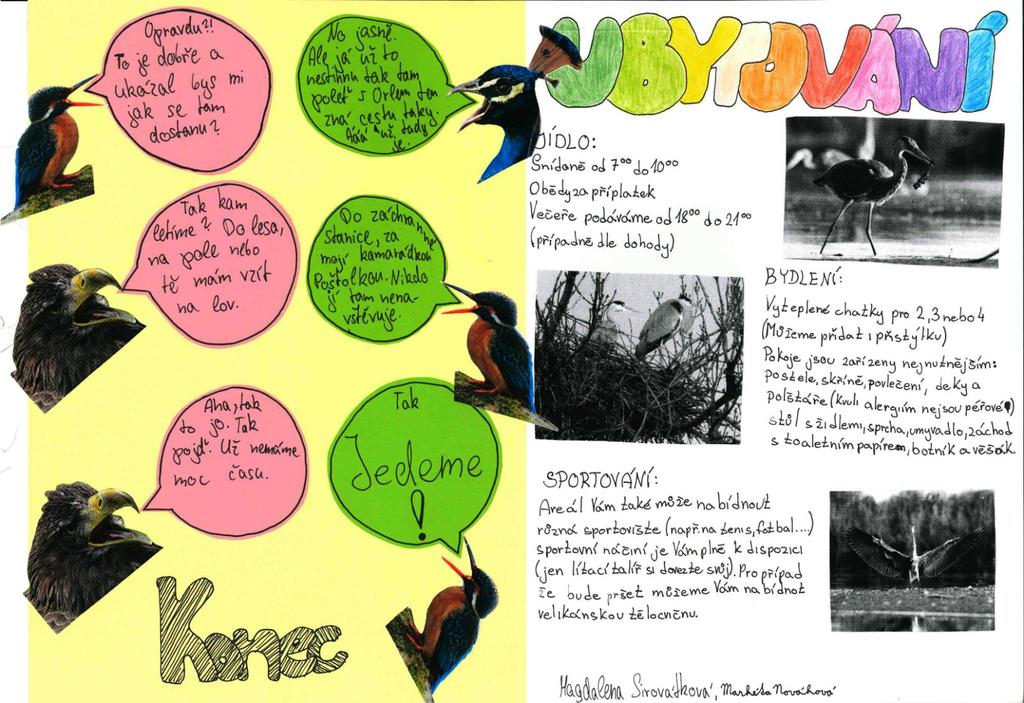 Opravdu?!
To je dobře a
ukázal bys mi
jak se tam
dostanu?
No jasně.
Ale já už to
nestihnu tak tam
poleť s Orlem ten
zná cestu taky.
Ááá už tady
je.
Tak kam
letíme? Do lesa,
na pole nebo
tě mám vzít
na lov.
Do záchranné
stanice, za
mojí kamarádkou
Poštolkou. Nikdo
jí tam nena-
vštěvuje.
Aha, tak
to jo. Tak
pojď. Už nemáme
moc času.
Tak
Jedeme
!
Konec
UBYTOVÁNÍ
JÍDLO:
Snídaně od 7⁰⁰ do 10⁰⁰
Obědy za příplatek
Večeře podáváme od 18⁰⁰ do 21⁰⁰
(případně dle dohody)
BYDLENÍ:
Vyteplené chatky pro 2, 3 nebo 4
(Můžeme přidat i přistýlku)
Pokoje jsou zařízeny nejnutnějším:
postele, skříně, povlečení, deky a
polštáře (kvuli alergiím nejsou péřové)
stůl s židlemi, sprcha, umyvadlo, záchod
s toaletním papírem, botník a věšák.
SPORTOVÁNÍ:
Areál Vám také může nabídnout
různá sportoviště (např. na tenis, fotbal...)
sportovní náčiní je Vám plně k dispozici
(jen lítací talíř si dovezte svůj). Pro případ
že bude pršet můžeme Vám nabídnot
velikánskou tělocvičnu.
Magdalena Sirovátková, Markéta Nováková